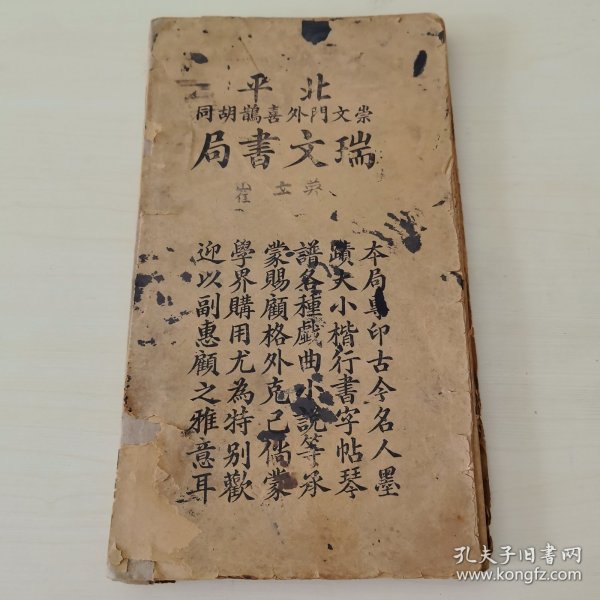 北平
崇文門外喜鵲胡同
瑞文書局
英立崔
本局專印古今名人墨
蹟大小楷行書字帖琴
譜各種戲曲小說等承
蒙賜顧格外克己倘蒙
學界購用尤為特别歡
迎以副惠顧之雅意耳
孔夫子旧书网
www.kongfz.com